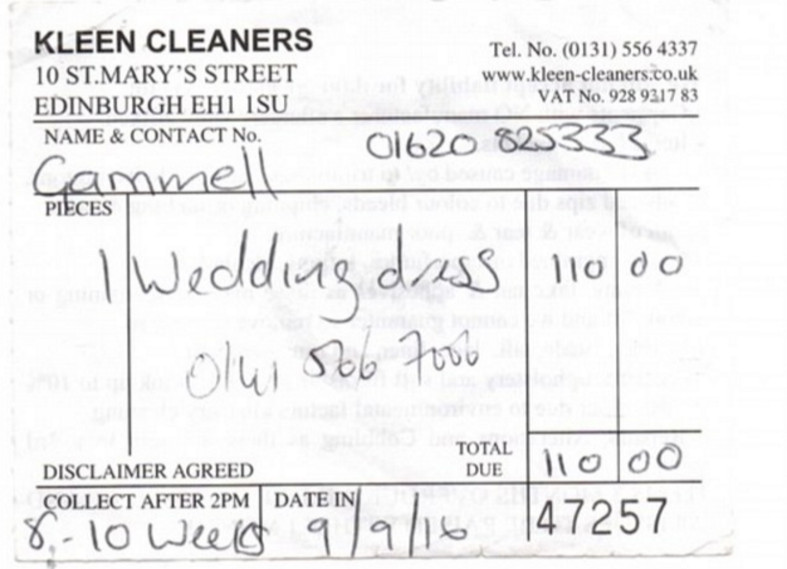 KLEEN CLEANERS
10 ST.MARY'S STREET
EDINBURGH EH1 1SU
Tel. No. (0131) 556 4337
www.kleen-cleaners.co.uk
VAT No. 928 9317 83
NAME & CONTACT No. 01620 825333
Gammell
PIECES
1 Wedding dress 110 00
0141 586 7066
DISCLAIMER AGREED
TOTAL DUE 110 00
COLLECT AFTER 2PM DATE IN
8-10 Weeks 9/9/16 47257